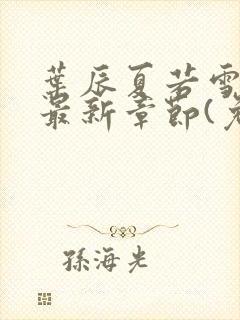 葉辰夏若雪
最新章節(
孫海光